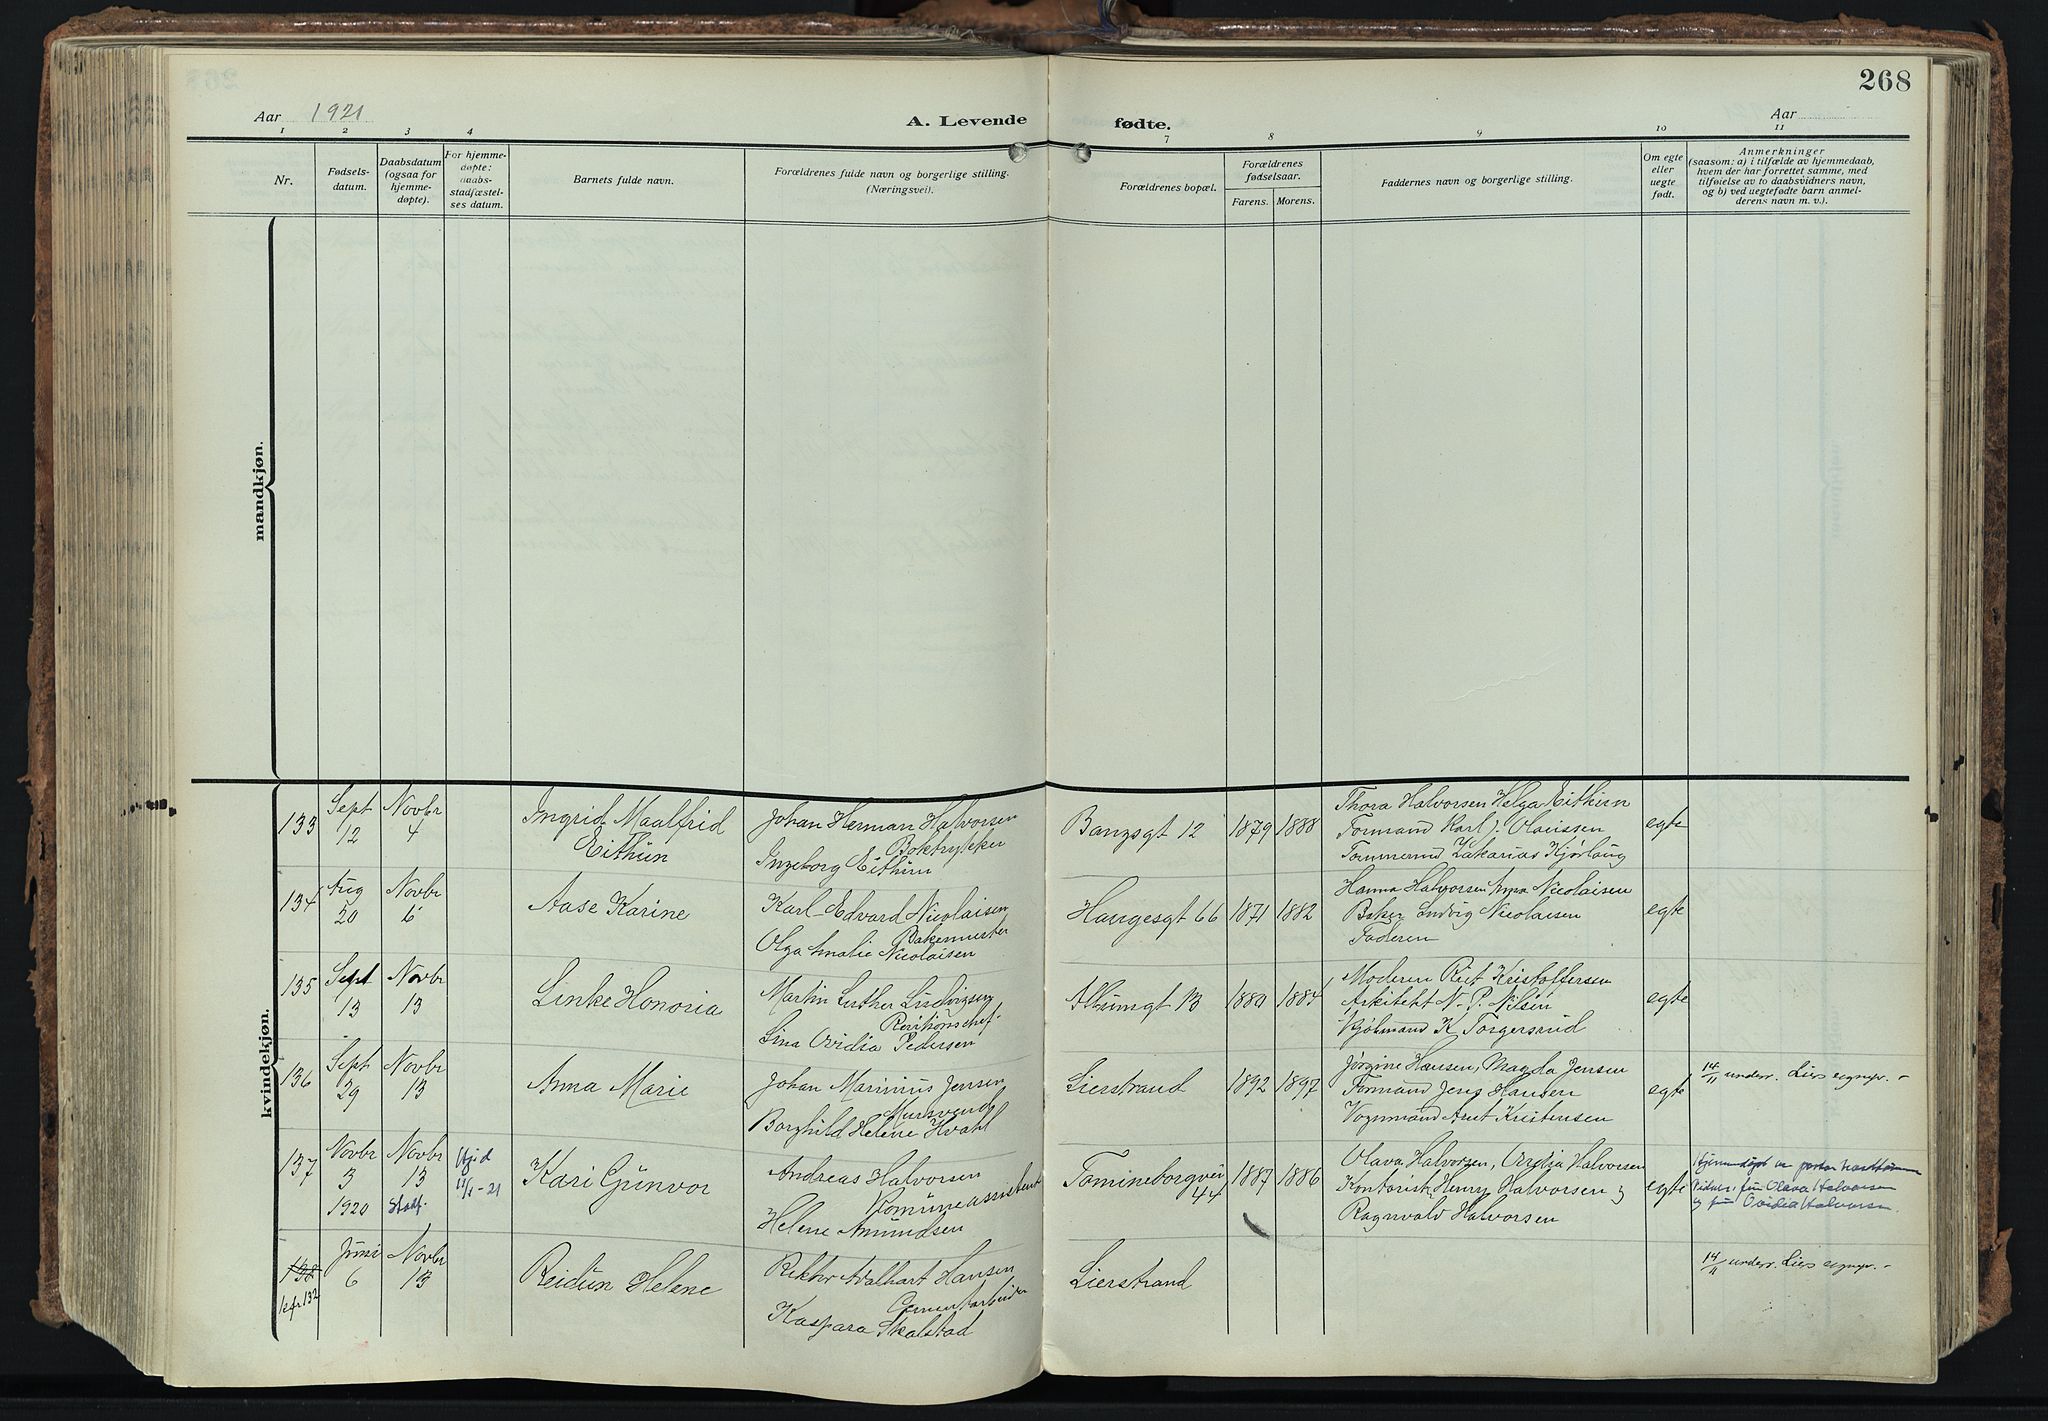 268
Aar 1921
A. Levende fødte.
Aar
1 2 3 4 7 8 9 10 11
Nr.
Fødsels-
datum.
Daabsdatum
(ogsaa for
hjemme-
døpte).
For hjemme-
døpte:
daabs-
stadfæstel-
ses datum.
Barnets fulde navn.
Forældrenes fulde navn og borgerlige stilling.
(Næringsvei).
Forældrenes bopæl.
Forældrenes
fødselsaar.
Farens. Morens.
Faddernes navn og borgerlige stilling.
Om egte
eller
uegte
født.
Anmerkninger
(saasom: a) i tilfælde av hjemmedaab,
hvem der har forrettet samme, med
tilføielse av to daabsvidners navn,
og b) ved uegtefødte barn anmel-
derens navn m. v.).
mandkjøn.
kvindekjøn.
133
Sept
12
Novbr
4
Ingrid Maalfrid
Eithun
Johan Herman Halvorsen
Boktrykker
Ingeborg Eithun
Banzsgt 12
1879 1888
Thora Halvorsen Helga Eithun
Formand Karl J. Olaussen
Tømmermd Zakarias Kjørlaug
egte
134
Aug
20
Novbr
6
Aase Karine
Karl Edvard Nicolaisen
Bakermester
Olga Amalie Nicolaisen
Haugesgt 66
1871 1882
Hanna Halvorsen Anna Nicolaisen
Baker Ludvig Nicolaisen
Faderen
egte
135
Sept
13
Novbr
13
Linke Honoria
Martin Luther Ludvigsen
Revisionschef
Lina Ovidia Pedersen
Albumgt 13
1880 1884
Moderen Rut Kristoffersen
Arkitekt N. P. Nilsen
Kjøbmand K Torgersrud
egte
136
Sept
29
Novbr
13
Anna Marie
Johan Marinius Jensen
Mursvend
Borghild Helene Hvahl
Lierstrand
1892 1897
Jørgine Hansen, Magda Jensen
Formand Jens Hansen
Vognmand Arnt Kristensen
egte
14/11 underr. Liers sognepr. -
137
Novbr
3
1920
Novbr
13
Stadf.
Hjd
11/1-21
Kari Gunvor
Andreas Halvorsen
Komuneassistent
Helene Amundsen
Tomineborgvei
44
1887 1886
Olava Halvorsen, Ovidia Halvorsen
Kontorist Henry Halvorsen og
Ragnvald Halvorsen
egte
Hjemmedøpt av pastor
Vidner: fru Olava Halvorsen
og fru Ovidia Halvorsen.
138
kfr 132
Juni
6
Novbr
13
Reidun Helene
Rektor Valhart Hansen
Cementarbeider
Kaspara Skalstad
Lierstrand
14/11 underr. Liers sognepr. -